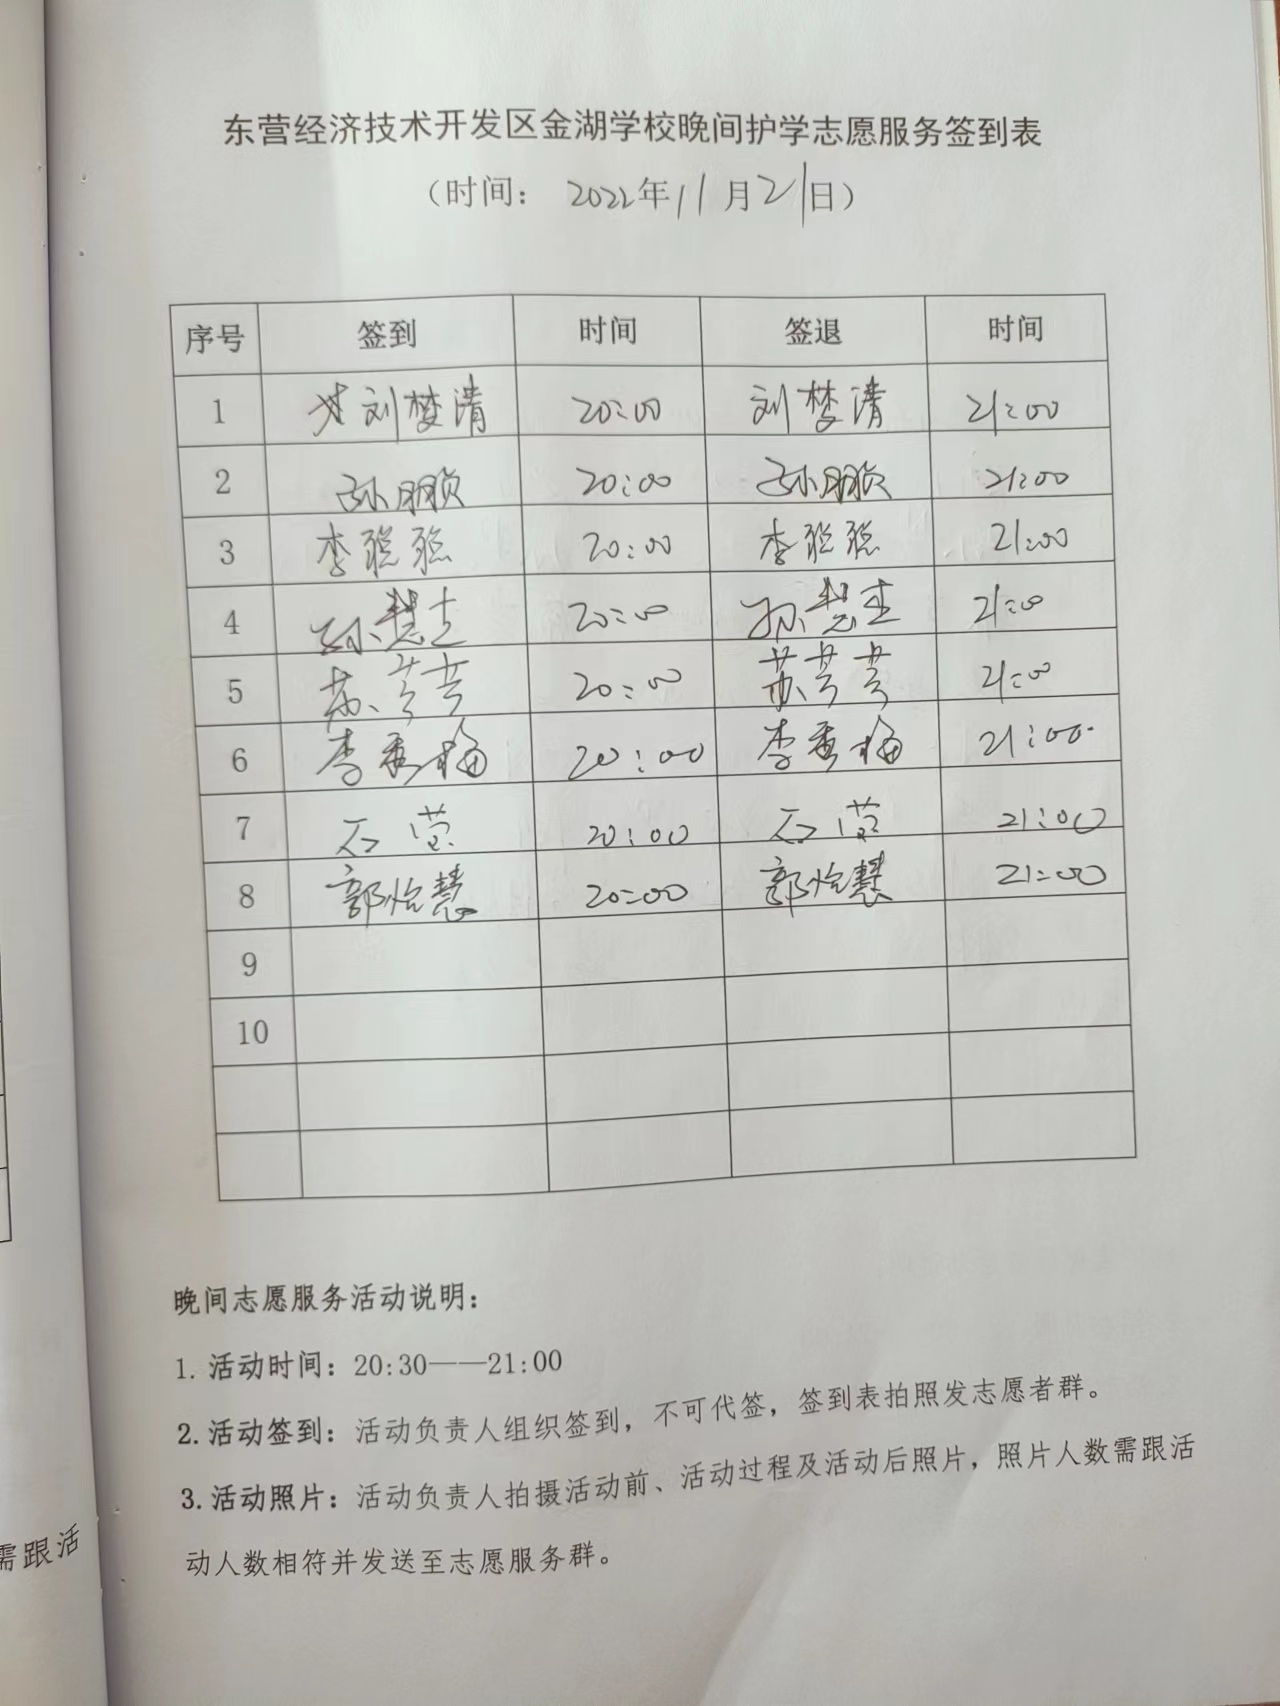 东营经济技术开发区金湖学校晚间护学志愿服务签到表
（时间： 2022年11月21日）
序号 签到 时间 签退 时间
1 刘梦清 20:00 刘梦清 21:00
2 孙鹏 20:00 孙鹏 21:00
3 李聪聪 20:00 李聪聪 21:00
4 孙慧 20:00 孙慧 21:00
5 苏芳芳 20:00 苏芳芳 21:00
6 李秀梅 20:00 李秀梅 21:00
7 石莹 20:00 石莹 21:00
8 郭怡慧 20:00 郭怡慧 21:00
9
10
晚间志愿服务活动说明：
1. 活动时间：20:30——21:00
2. 活动签到：活动负责人组织签到，不可代签，签到表拍照发志愿者群。
3. 活动照片：活动负责人拍摄活动前、活动过程及活动后照片，照片人数需跟活
动人数相符并发送至志愿服务群。
需跟活